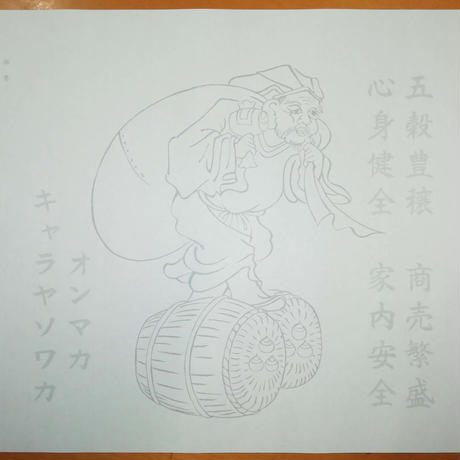 五穀豊穣　商売繁盛
心身健全　家内安全
オンマカ
キャラヤソワカ